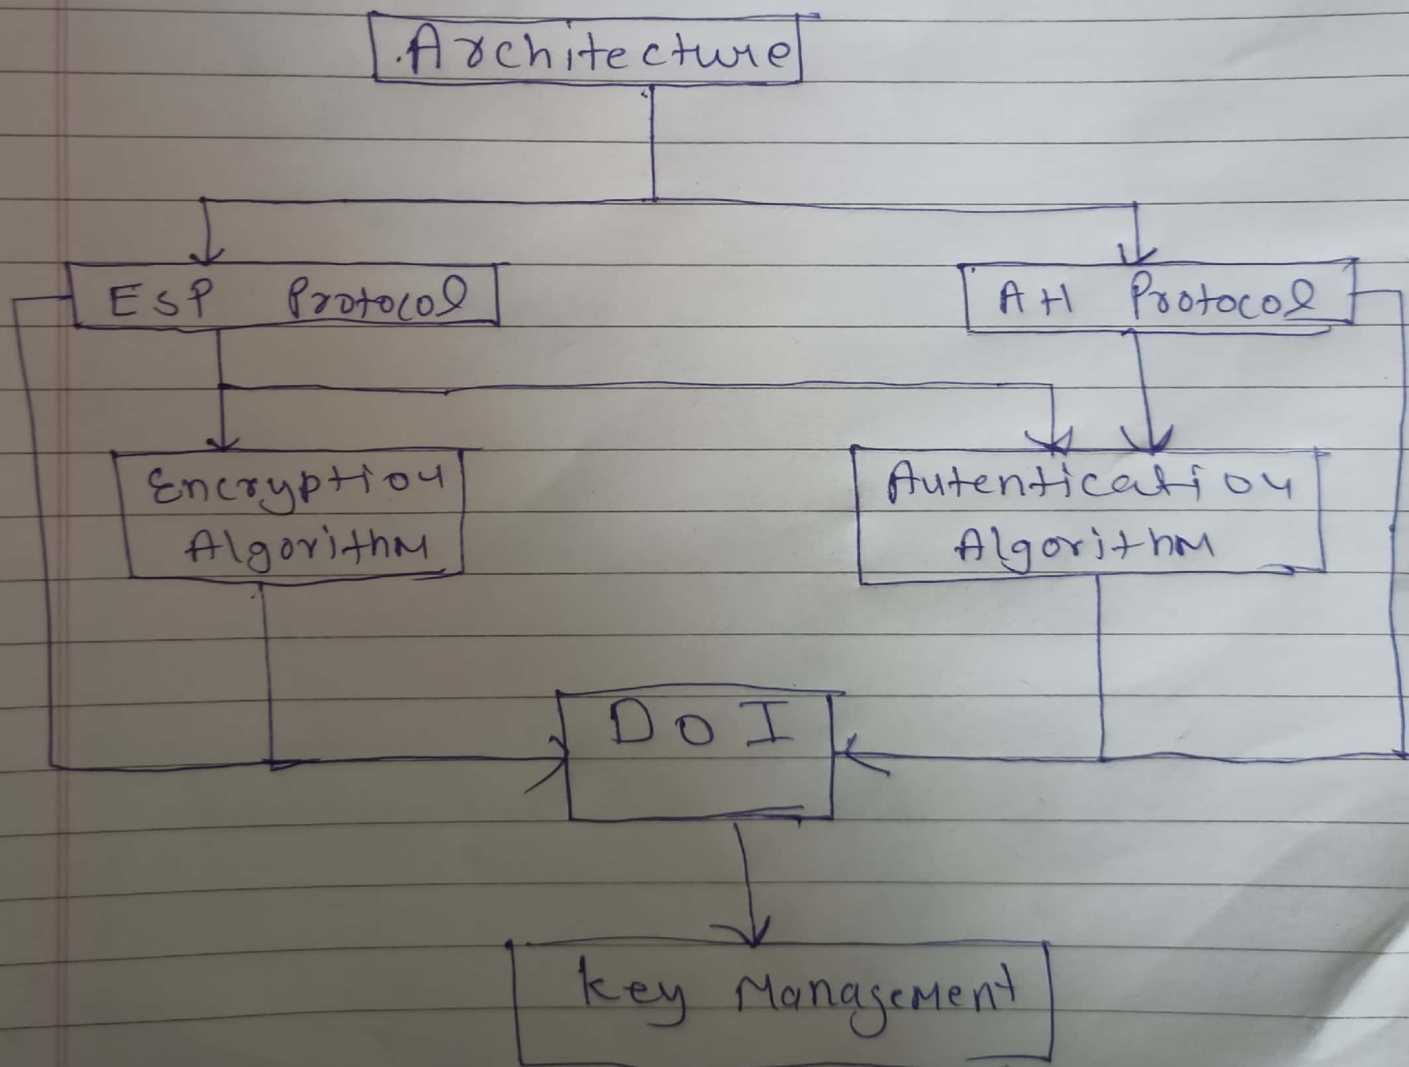 Architecture
ESP Protocol
AH Protocol
Encryption
Algorithm
Autentication
Algorithm
DOI
Key Management